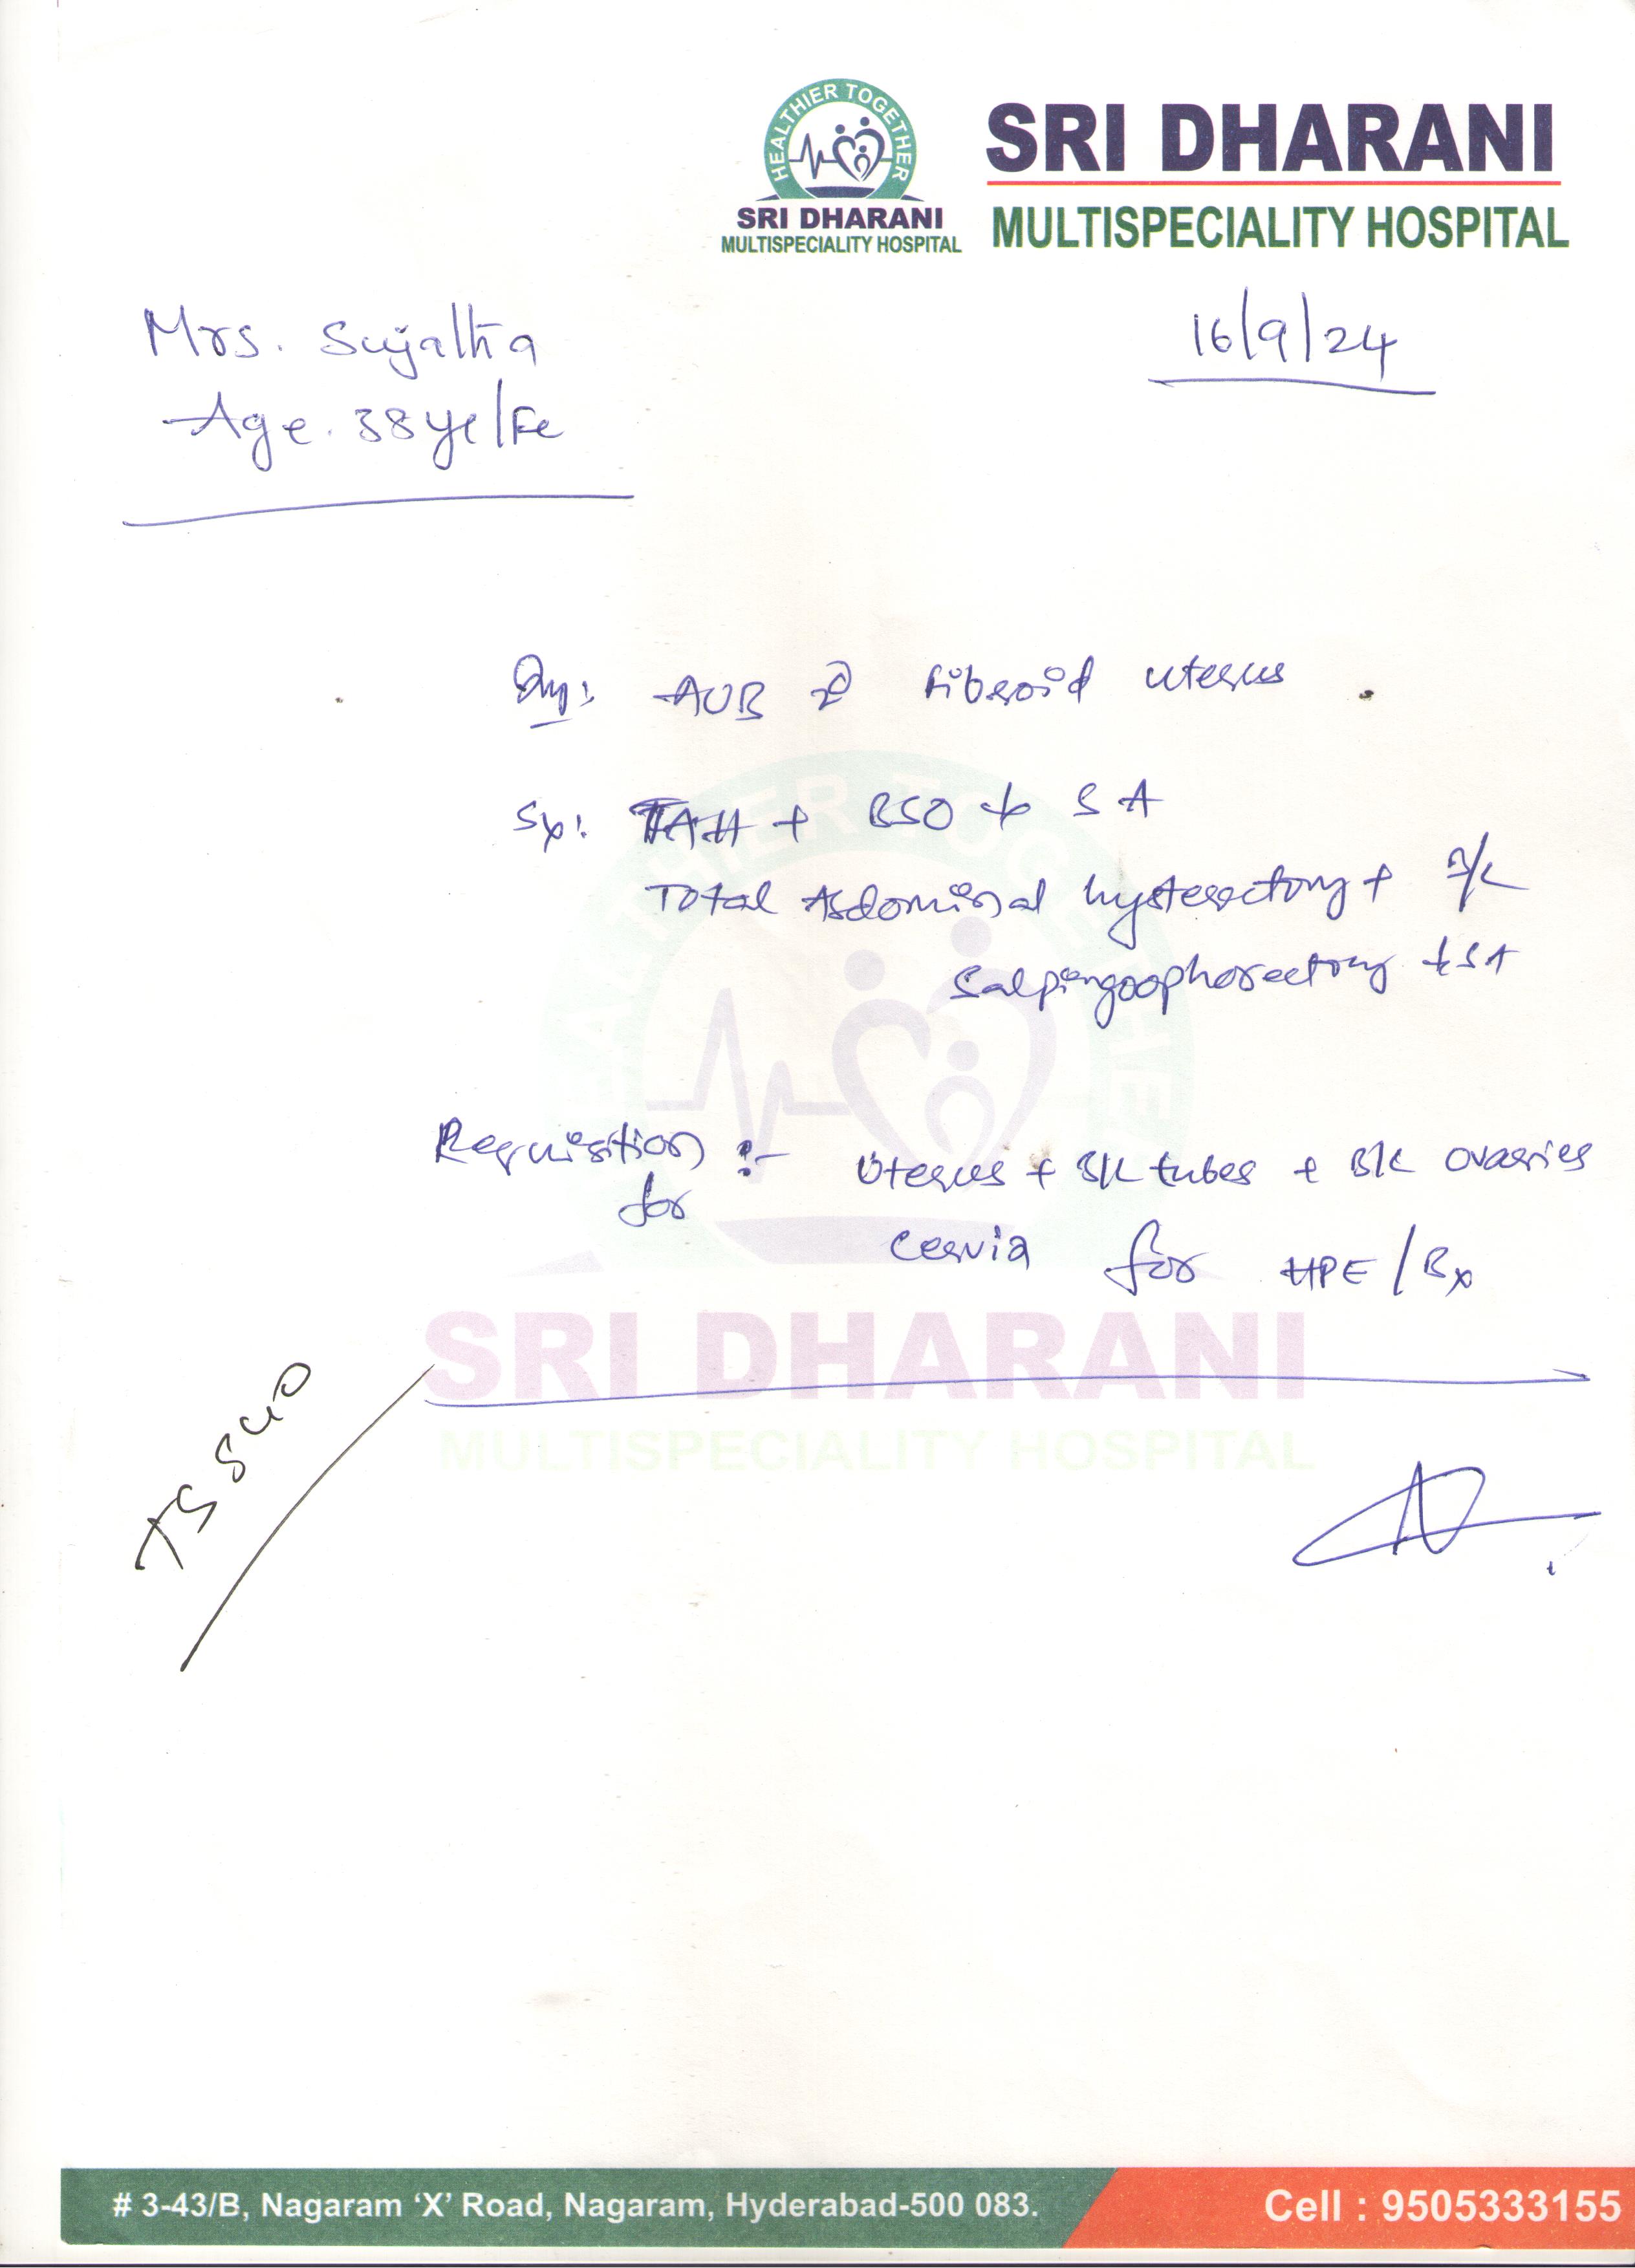 HEALTHIER TOGETHER
SRI DHARANI
MULTISPECIALITY HOSPITAL
SRI DHARANI
MULTISPECIALITY HOSPITAL
Mrs. Sujatha
16/9/24
Age. 38 yr/Fe
AUB c̄ fibroid uterus
Sx: TAH + BSO ↓ SA
Total Abdominal hysterectomy + B/L
Salpingoophorectomy ↓ SA
Requisition :- Uterus + B/L tubes + B/L ovaries
for
Cervix for HPE / Bx
HEALTHIER TOGETHER
SRI DHARANI
MULTISPECIALITY HOSPITAL
# 3-43/B, Nagaram ‘X’ Road, Nagaram, Hyderabad-500 083.
Cell : 9505333155